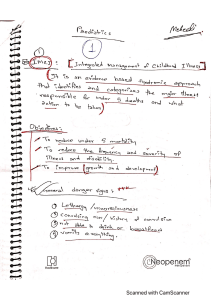 Paediatrics
Mehedi
1
1
IMCI : [Integrated Management of Childhood Illness]
It is an evidence based syndromic approach
that identifies and categorizes the major illness
responsible for under 5 deaths and what
action to be taken
Objectives:
- To reduce under 5 mortality
- To reduce the frequency and severity of
illness and disability.
- To improve growth and development
General danger signs : ***
① Lethargy / unconsciousness
② convulsing now / history of convulsion
③ not able to drink or breastfeed
④ vomits everything.
Neopenem
Scanned with CamScanner